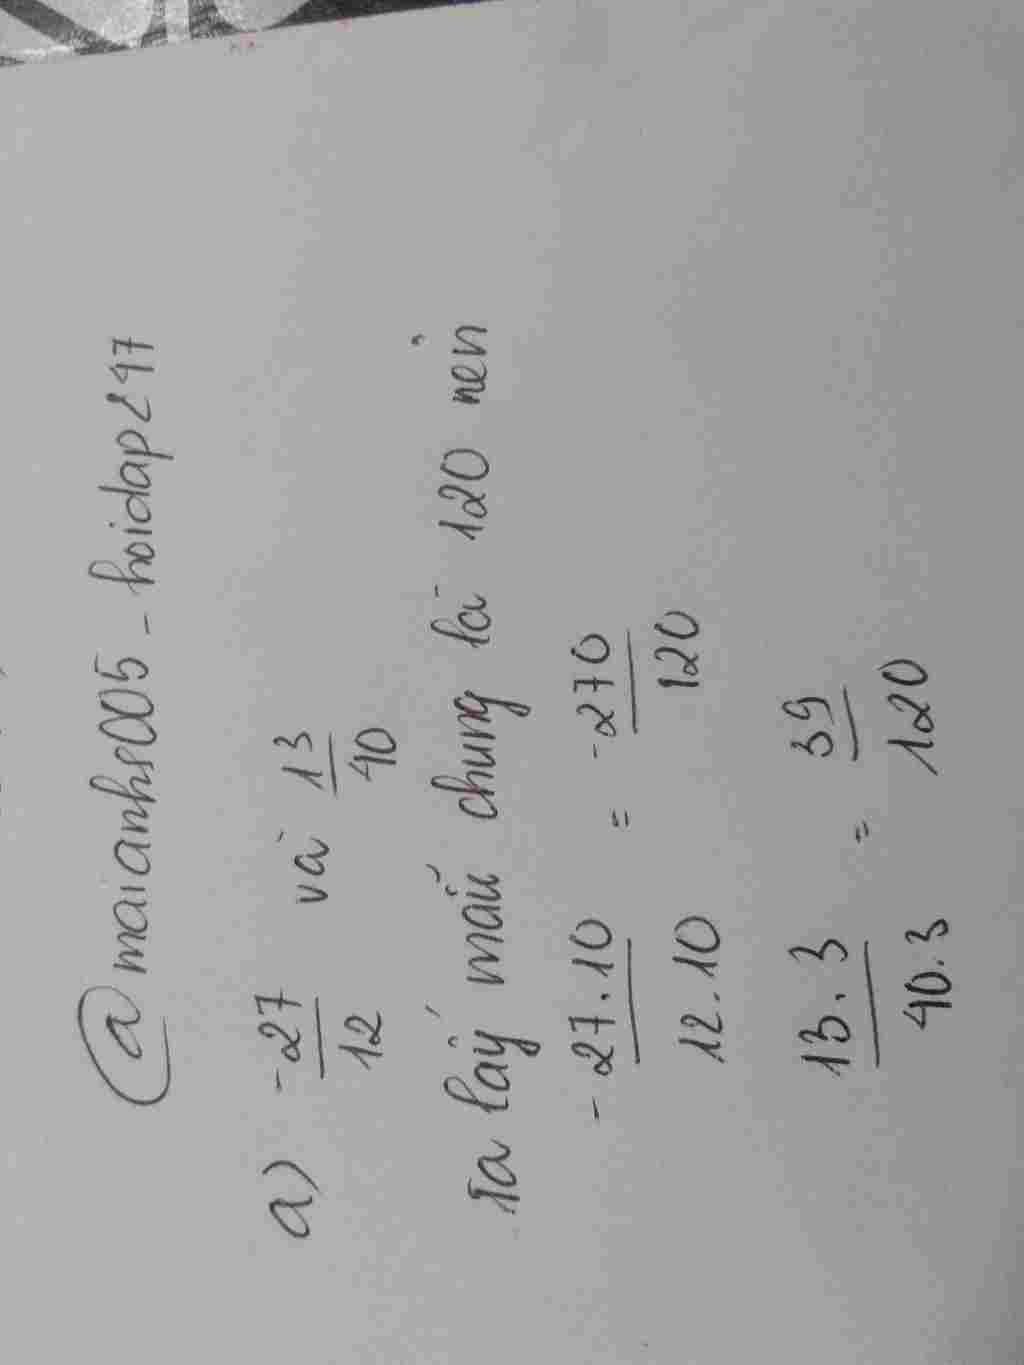 @maianhs005 - hoidap247
a) -27/12 và 13/40
Ta lấy mẫu chung là 120 nên
-27.10/12.10 = -270/120
13.3/40.3 = 39/120